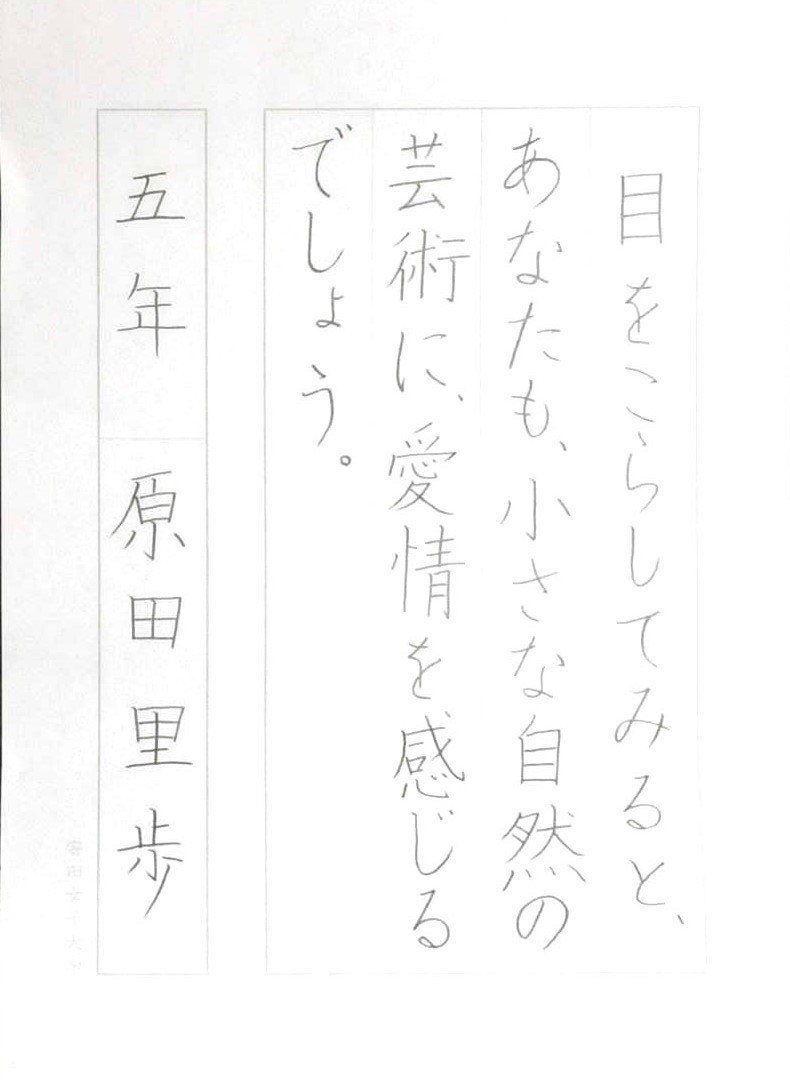 目をこらしてみると、
あなたも、小さな自然の
芸術に、愛情を感じる
でしょう。
五年 原田里歩
安田女子大